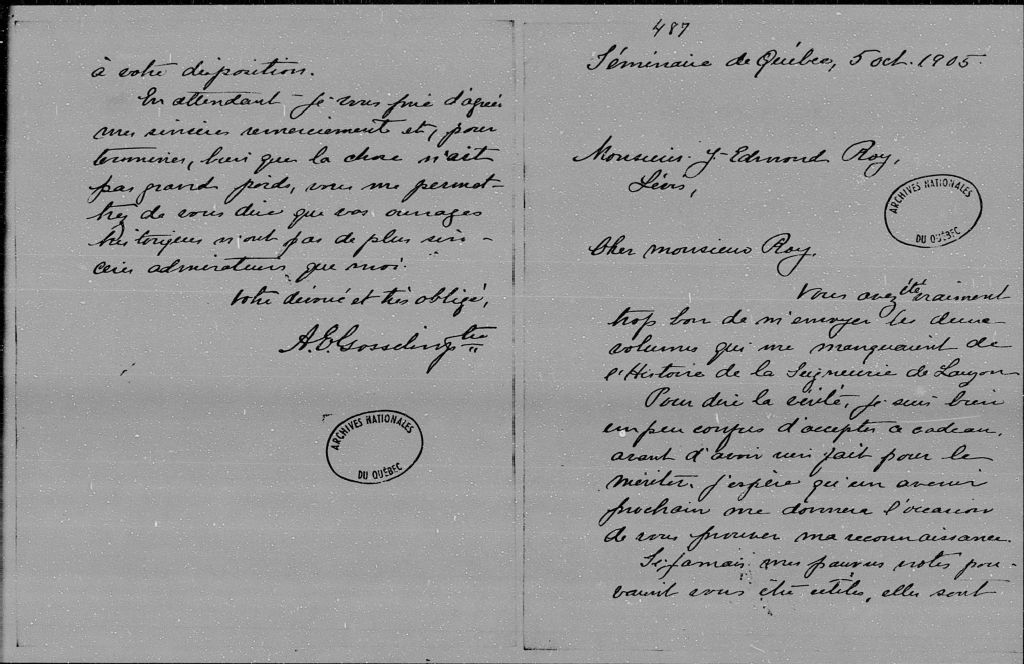 487
Séminaire de Québec, 5 oct. 1905.
Monsieur J-Edmond Roy,
Lévis,
ARCHIVES NATIONALES
DU QUÉBEC
Cher monsieur Roy,
Vous avez été vraiment
trop bon de m'envoyer les deux
volumes qui me manquaient de
l'Histoire de la Seigneurie de Lauzon
Pour dire la vérité, je suis bien
un peu confus d'accepter ce cadeau,
avant d'avoir rien fait pour le
mériter. J'espère qu'un avenir
prochain me donnera l'occasion
de vous prouver ma reconnaissance.
Si jamais mes pauvres notes pou-
vaient vous être utiles, elles sont
à votre disposition.
En attendant je vous prie d'agréer
mes sincères remerciements et, pour
terminer, bien que la chose n'ait
pas grand poids, vous me permet-
trez de vous dire que vos ouvrages
historiques n'ont pas de plus sin-
cères admirateurs que moi.
Votre dévoué et très obligé,
A.E. Gosselin, ptre
ARCHIVES NATIONALES
DU QUÉBEC